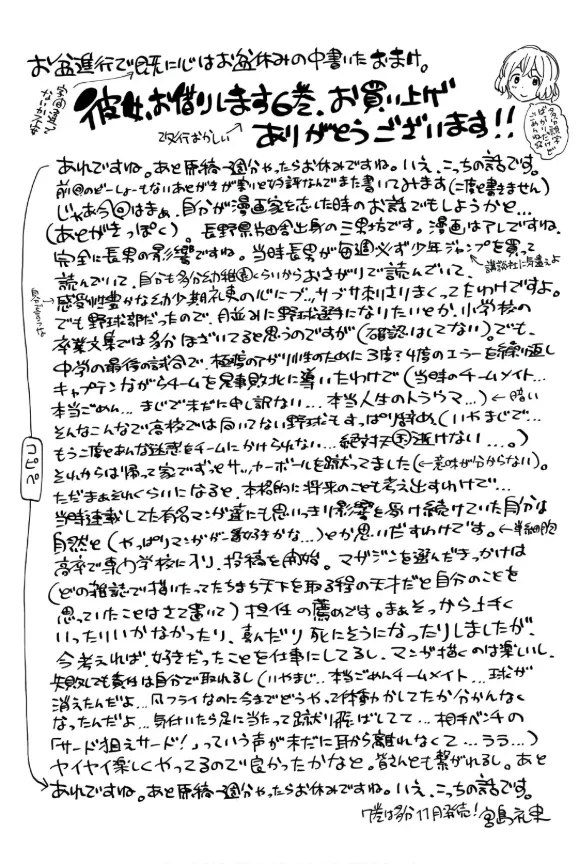 お盆進行で既に心はお盆休みの中書いたおまけ。
彼女、お借りします6巻、お買い上げ
ありがとうございます!!
改行おかしい
あれですね。あと原稿一週分やったらお休みですね。いえ、こっちの話です。
前回のどーしょーもないあとがきが凄いと好評なんでまた書いてみます(二度と書きません)
じゃあ今回はまあ、自分が漫画家を志した時のお話でもしようかと…
(あとがきっぽく)。長野県片田舎出身の三男坊です。漫画はアレですね、
完全に長男の影響ですね。当時長男が毎週必ず少年ジャンプを買って
読んでいて、自分も多分幼稚園くらいからおさがりで読んでいて、
講談社に有るまえよ
感受性豊かな幼少期礼吏の心にブッサブサ刺さりまくってたわけですよ。
でも野球部だったので、月並みに野球選手になりたいとか、小学校の
卒業文集では多分ほざいてると思うのですが(確認はしてない)。でも、
中学の最後の試合で、極度のアガリ性のために3度?4度のエラーを繰り返し
キャプテンながらチームを見事敗北に導いたわけで(当時のチームメイト…
本当ごめん…まじで未だに申し訳ない…本当人生のトラウマ…)←暗い
そんなこんなで高校では向いてない野球もすっぱり辞め、(いやまじで…
もう二度とあんな迷惑をチームにかけられない…絶対
それからは帰って家でずっとサッカーボールを蹴ってました(←意味が分からない)。
ただまぁそれくらいになると、本格的に将来のことも考え出すわけで…
当時連載してた有名マンガ達にも思いっきり影響を受け続けていた自分は
自然と(やっぱりマンガが一番好きかな…)とか思いだすわけです。←単細胞
高卒で専門学校に入り、投稿を開始。マガジンを選んだきっかけは
(どの雑誌で描いたってたちまち天下を取る程の天才だと自分のことを
思っていたことはさて置いて)担任の薦めです。まぁそっから上手く
いったりいかなかったり、喜んだり死にそうになったりしましたが、
今考えれば、好きだったことを仕事にしてるし、マンガ描くのは楽しいし、
失敗しても責任は自分で取れるし(いやまじ…本当ごめんチームメイト…球が
消えたんだよ…凡フライなのに今までどうやって体動かしてたか分かんなく
なったんだよ…気付いたら足に当たって蹴り飛ばしてて…相手ベンチの
「サード狙えサード!」っていう声が未だに耳から離れなくて…うう…)
ヤイヤイ楽しくやってるので良かったかなと。皆さんとも繋がれるし。あと
あれですね。あと原稿一週分やったらお休みですね。いえ、こっちの話です。
コピペ
7巻は多分11月発売! 宮島礼吏